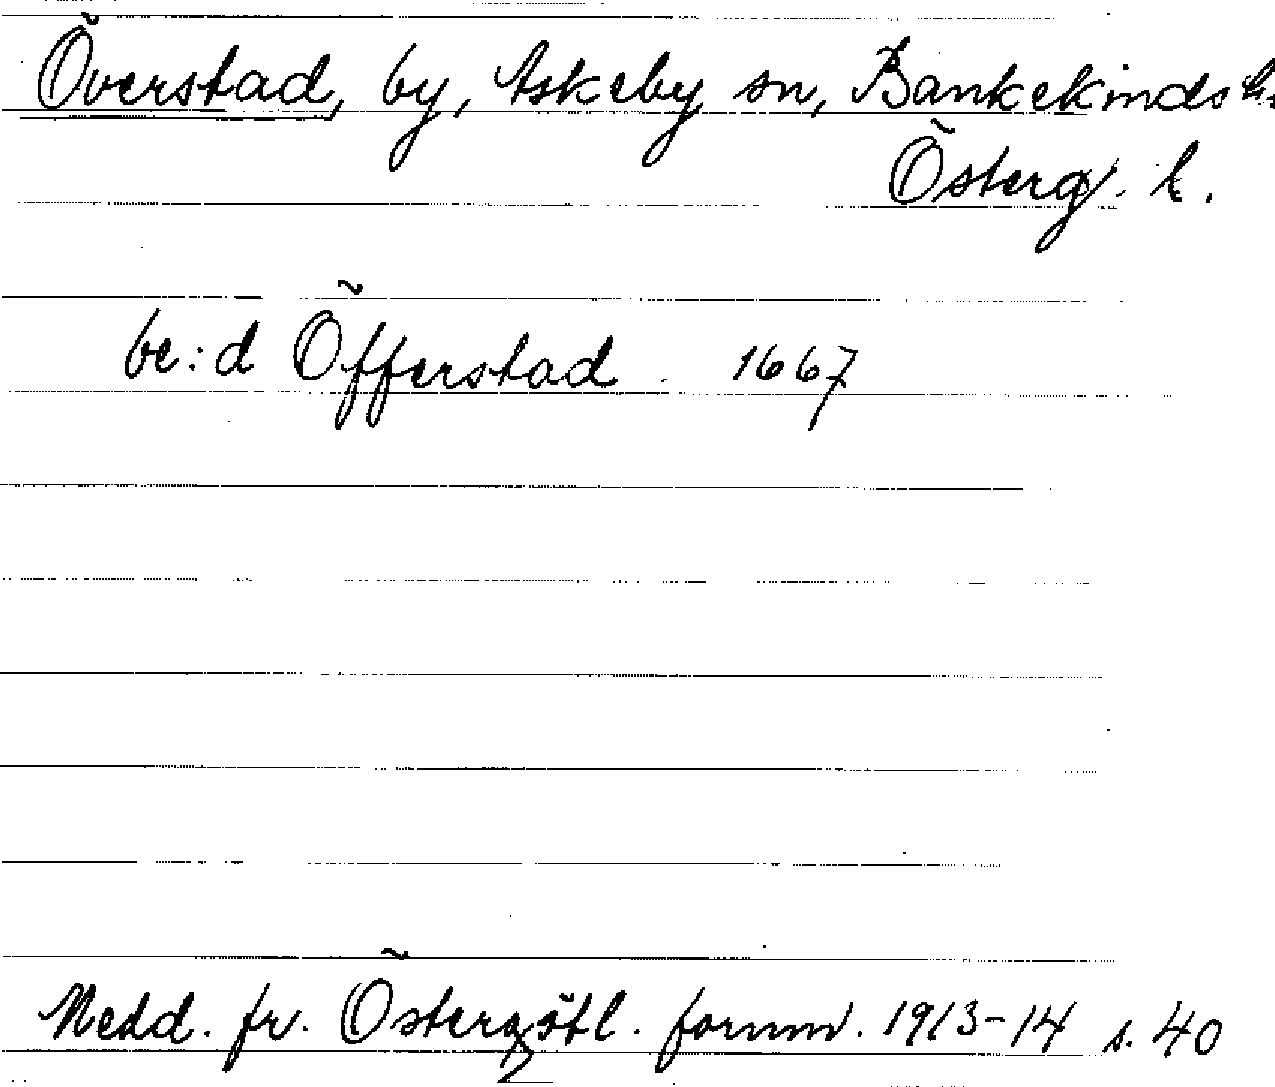 Överstad, by, Askeby sn, Bankekinds h.
Österg. l.
be:d Öfferstad. 1667
Medd. fr. Östergötl. fornm. 1913-14 s. 40